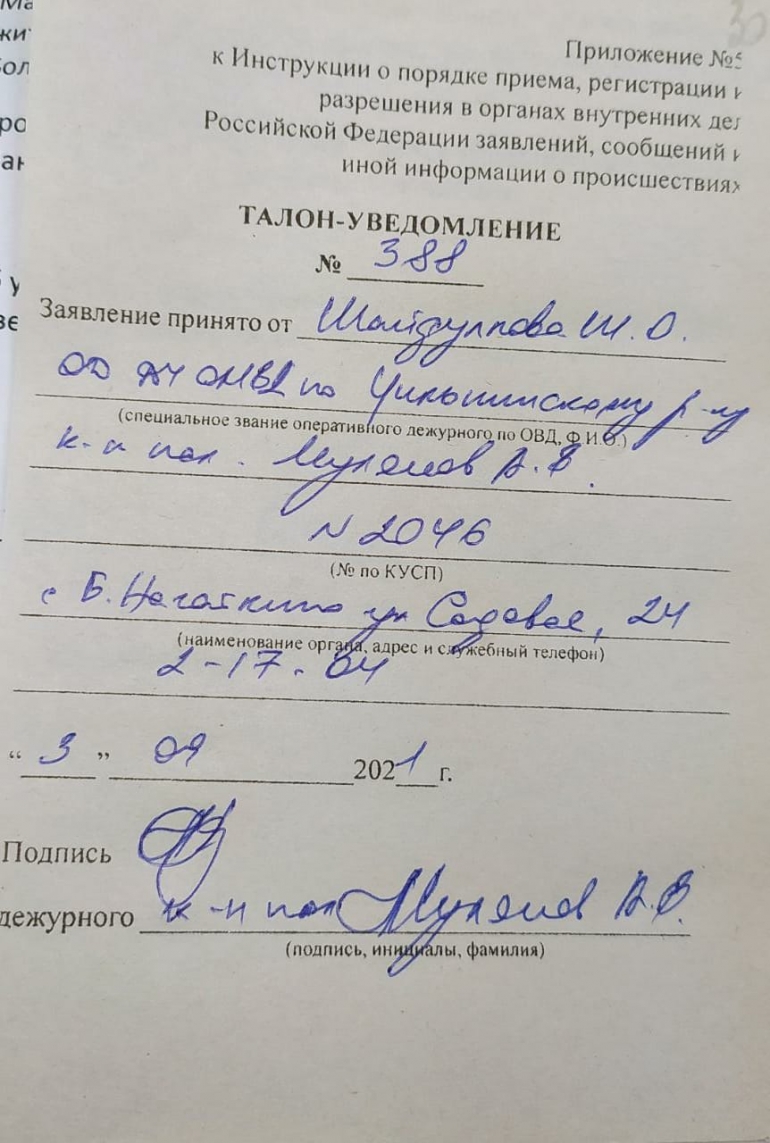 30
Приложение №5
к Инструкции о порядке приема, регистрации и
разрешения в органах внутренних дел
Российской Федерации заявлений, сообщений и
иной информации о происшествиях
ТАЛОН-УВЕДОМЛЕНИЕ
№ 388
Заявление принято от Шайдуллова Ш. О.
ОД ДЧ ОМВД по Цильнинскому р-ну
(специальное звание оперативного дежурного по ОВД, Ф.И.О.)
к-н пол. А. В.
N 2046
(№ по КУСП)
с Б. Нагаткино ул Садовая, 24
(наименование органа, адрес и служебный телефон)
2-17-04
“ 3 ” 09 2021 г.
Подпись
дежурного к-н пол А. В.
(подпись, инициалы, фамилия)